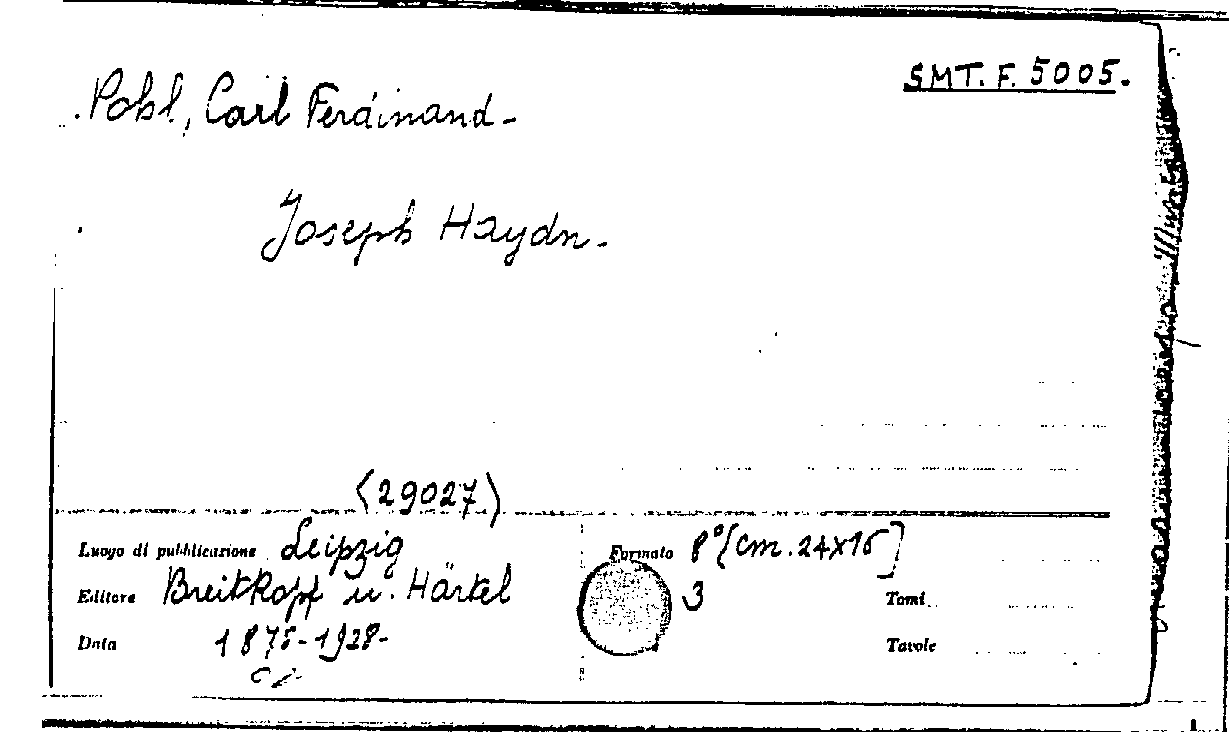 SMT. F. 5005.
Pohl, Carl Ferdinand-
Joseph Haydn.
(29027)
Luogo di pubblicazione Leipzig
Formato 8° [cm. 24x16]
Editore Breitkopf u. Härtel
3
Tomi
Data 1875-1928-
Tavole